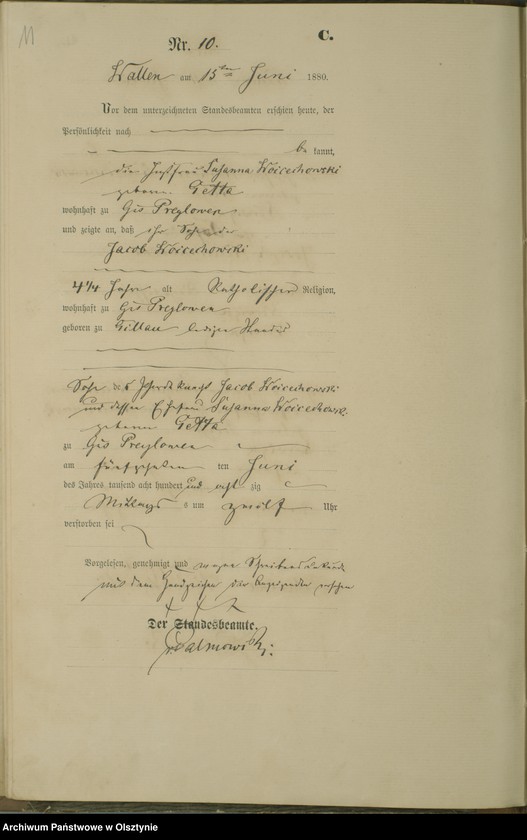 11
C.
Nr. 10.
Wallen am 15ten Juni 1880.
Vor dem unterzeichneten Standesbeamten erschien heute, der
Persönlichkeit nach
bekannt,
die Susanna Woicechowski
geborene Tetta
wohnhaft zu Gut Preylowen
und zeigte an, daß ihr Sohn der
Jacob Woicechowski
4 1/4 Jahre alt Katholischer Religion,
wohnhaft zu Gut Preylowen
geboren zu Gillau ledigen Standes
Sohn des Jacob Woicechowski
und dessen Ehefrau Susanna Woicechowski
geborene Tetta
zu Gut Preylowen
am fünfzehnten ten Juni
des Jahres tausend acht hundert und achtzig
Mittags um zwölf Uhr
verstorben sei
Vorgelesen, genehmigt und wegen
mit dem Handzeichen der versehen
Der Standesbeamte.
Palmowski
Archiwum Państwowe w Olsztynie